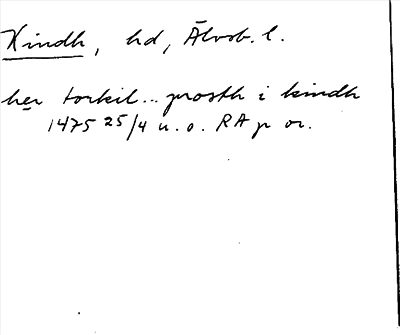 Kindh, hd, Älvsb. l.
her torkil... prosth i kindh
1475 25/4 u. o. RA p or.